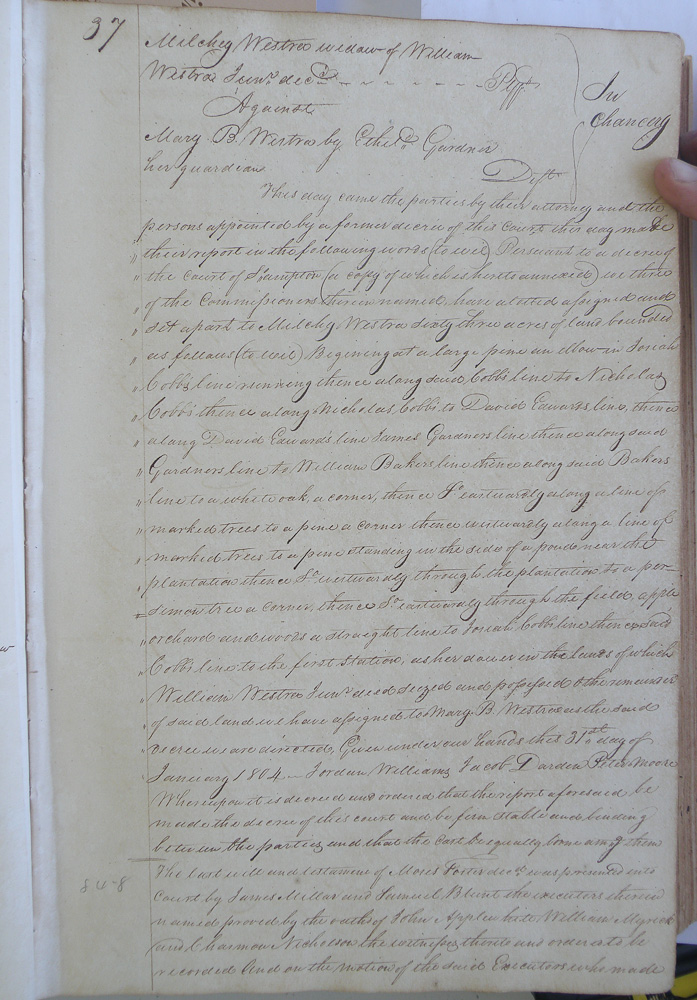 37
Milchey Westra widow of William
Westra Junr. decd. Plff.
Against
In
Chancery
Mary B. Westra by Etheld. Gardner
her guardian Deft.
This day came the parties by their attorney and the
persons appointed by a former decree of this Court this day made
their report in the following words (to wit) Persuant to a decree of
the Court of S.ampton (a copy of which is hereto annexed) we three
of the Commissioners therein named, have alotted assigned and
set apart to Milchey Westra Sixty three acres of land bounded
as follows (to wit) Begening at a large pine an elbow in Josiah
Cobbs line running thence along said Cobbs line to Nicholas
Cobbs thence along Nicholas Cobbs to David Edwards line, thence
along David Edwards line James Gardners line thence along said
Gardners line to William Bakers line thence along said Bakers
line to a white oak, a corner, thence So. eastwardly along a line of
marked trees to a pine a corner thence westwardly along a line of
marked trees to a pine standing in the side of a pond near the
plantation thence So. westwardly through the plantation to a per-
simon tree a corner, thence So. eastwardly through the field, apple
orchard and woods a straight line to Josiah Cobbs line thence said
Cobbs line to the first Station, as her dower in the Lands of which
William Westra Junr. died siezed and possessed & the remainder
of said land we have assigned to Mary B. Westra as the said
decree we are directed, Given under our hands this 31st day of
January 1804 Jordan Williams, Jacob Darden Peter Moore
Whereupon it is decreed and ordered that the report aforesaid be
made the decree of this court and be firm stable and binding
between the parties and that the Cost be equally borne among them
848
The last will and testament of Moses Foster decd. was presented into
Court by James Millar and Samuel Blunt the executors therein
named proved by the oaths of John Applewhite, William Myrick
and Charmon Nicholson the witnesses thereto and ordered to be
recorded And on the motion of the said Executors who made